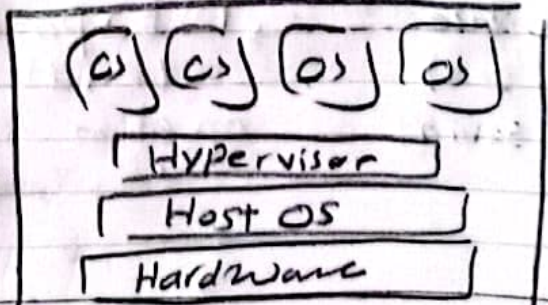 OS OS OS OS
Hypervisor
Host OS
Hardware